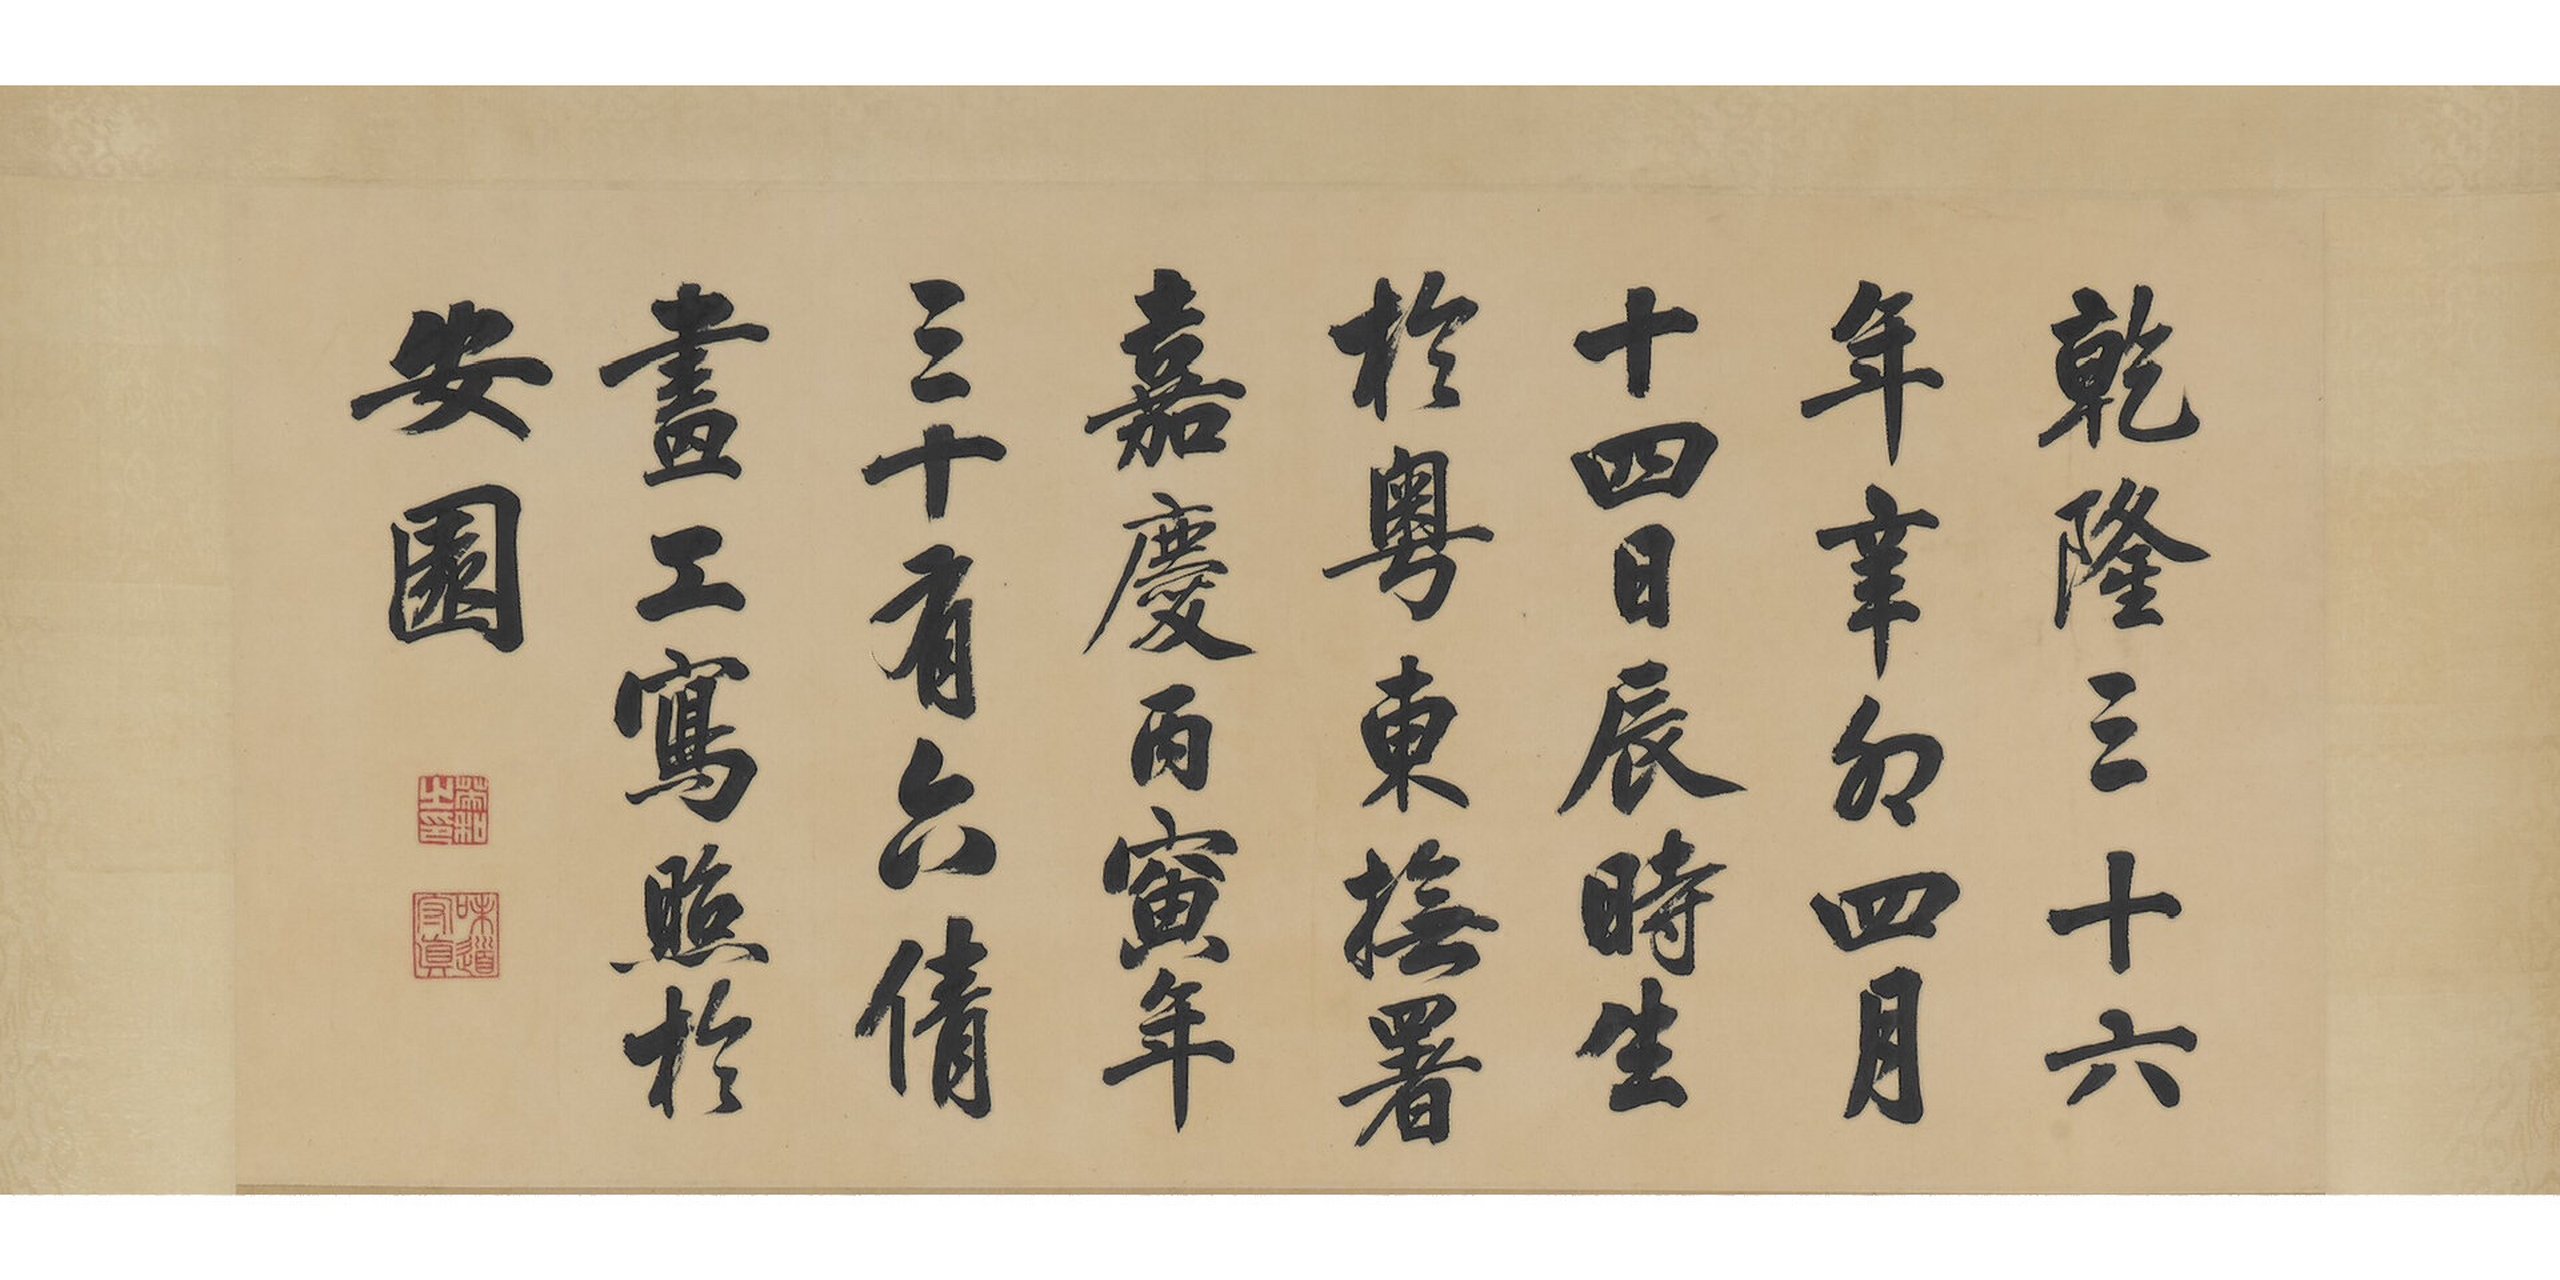 乾隆三十六
年辛卯四月
十四日辰時生
於粵東撫署
嘉慶丙寅年
三十有六倩
畫工寫照於
安園
味道守真